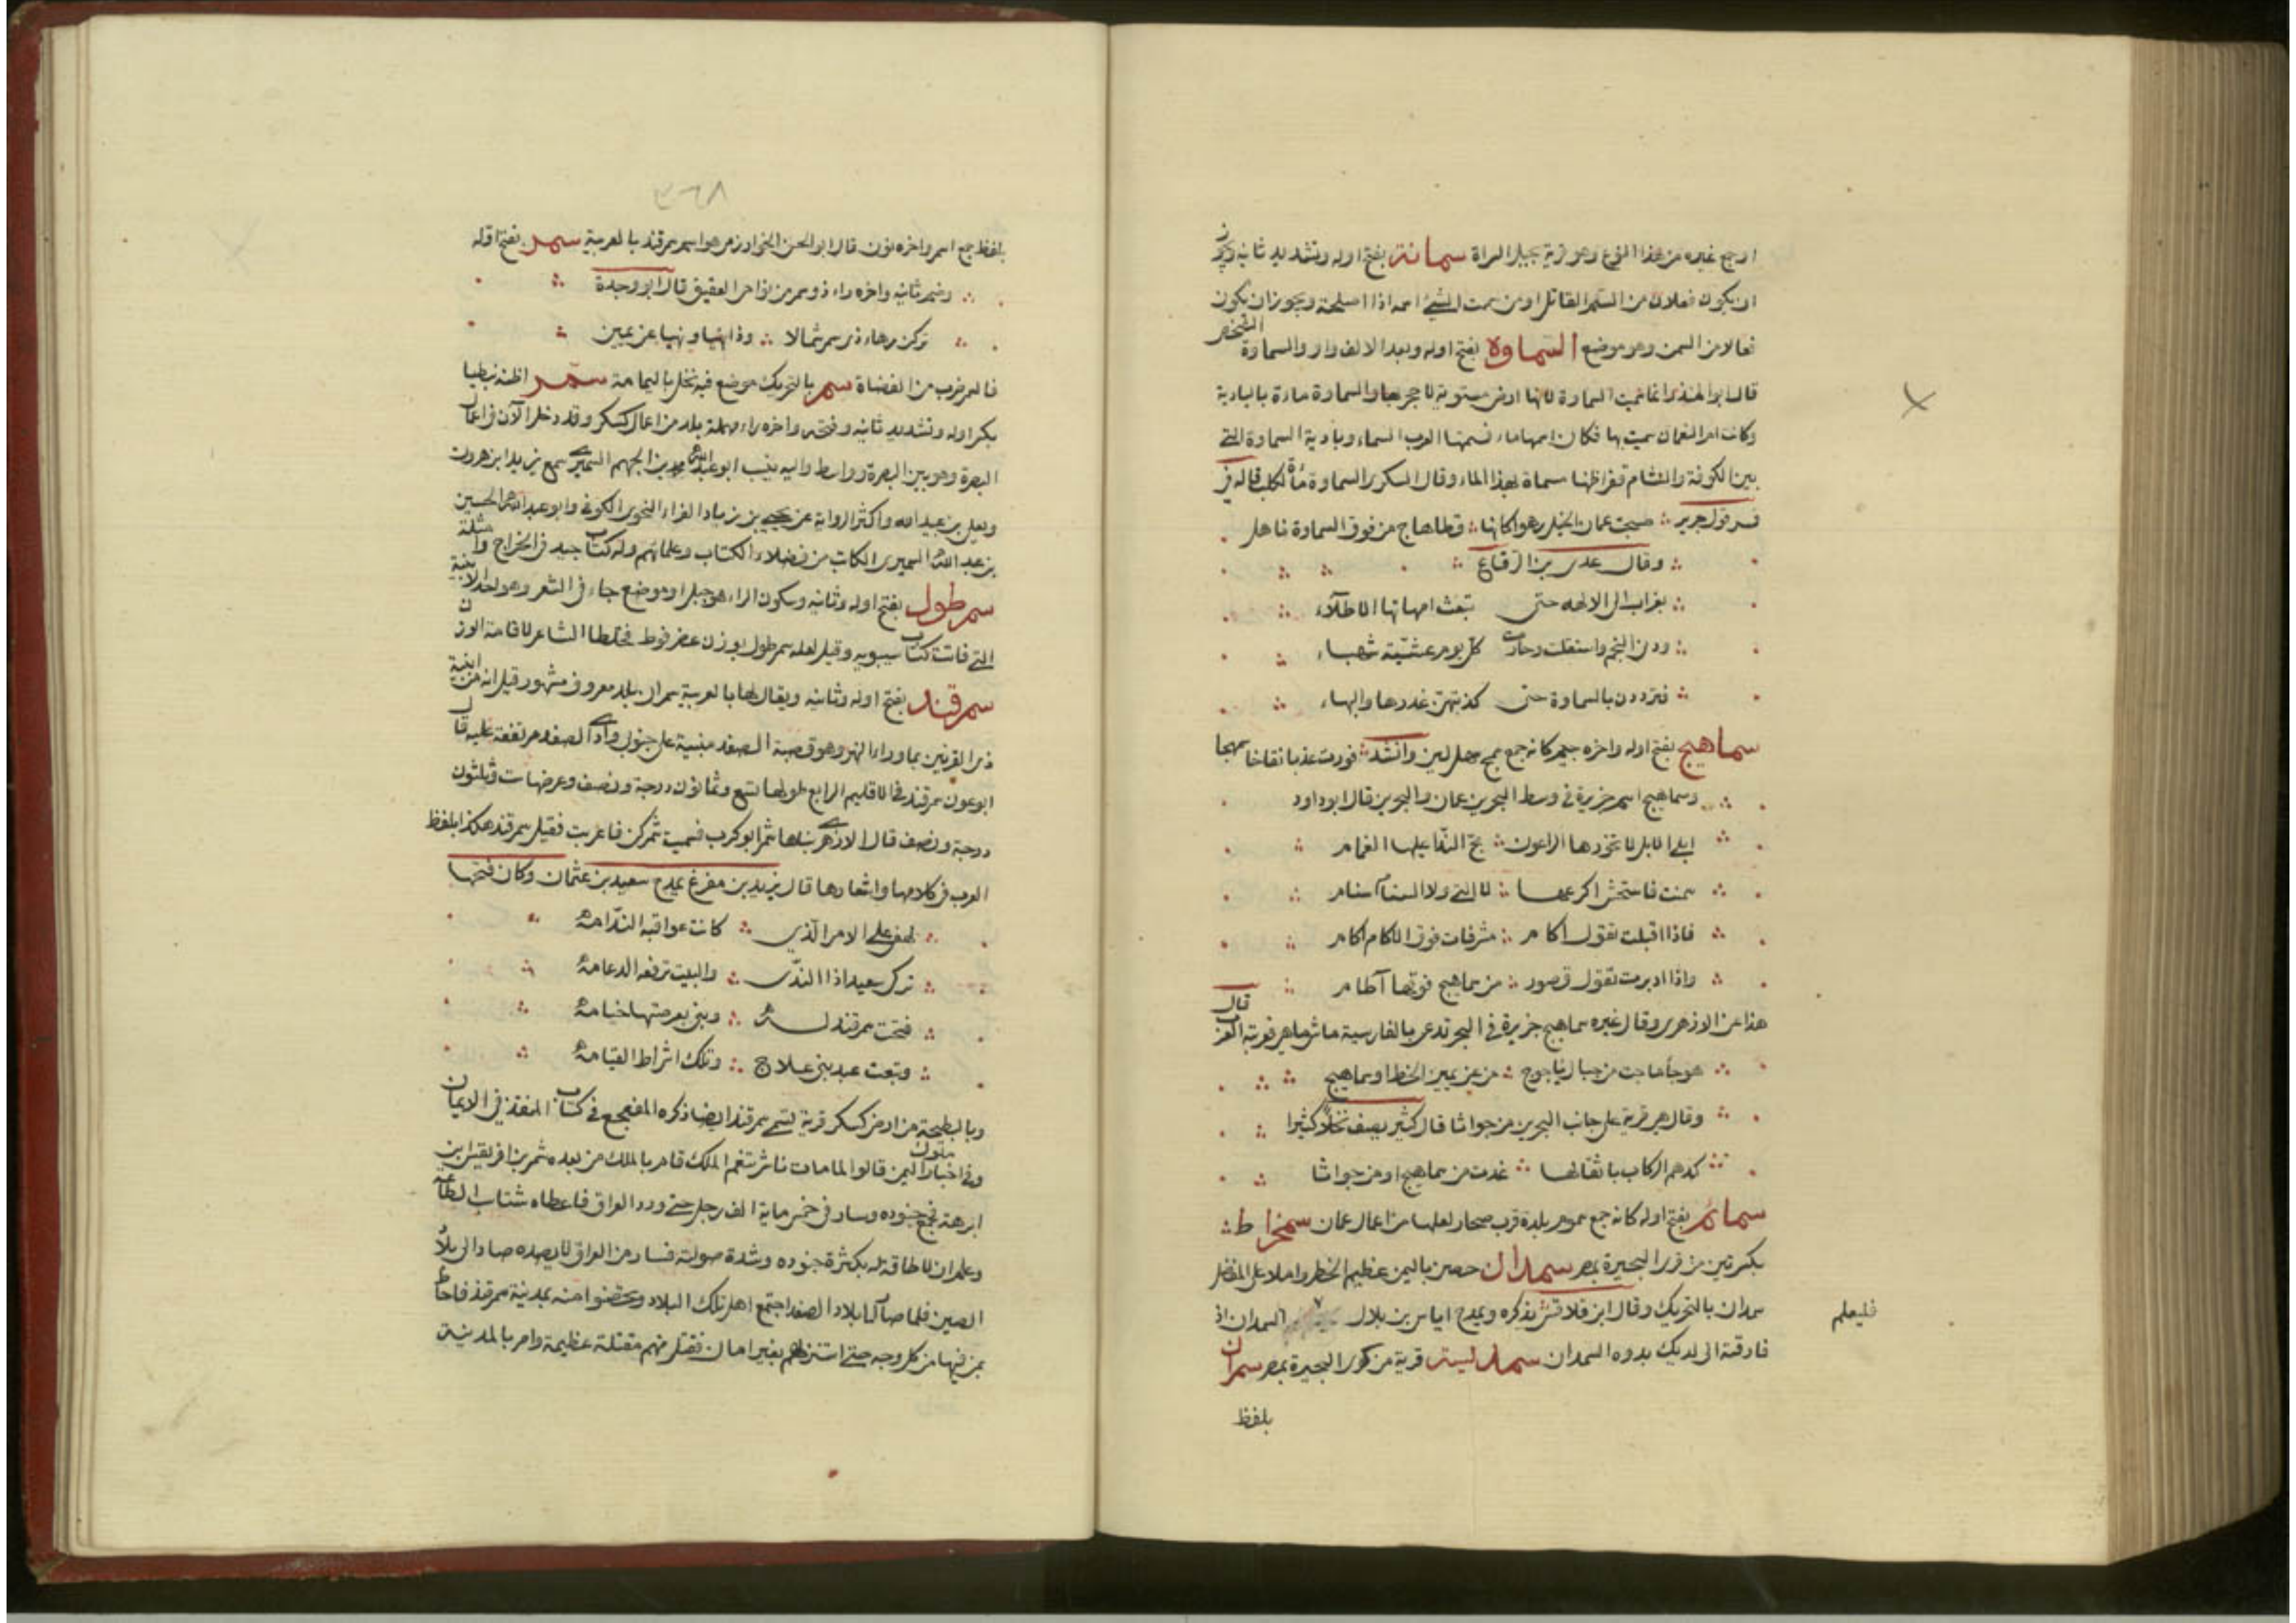 او جمع غيره من هذا النوع وهو قرية بجبل السراة سمانة بفتح اوله وتشديد ثانيه ويجوز
ان يكون فعلان من السم القاتل او من سمت الشيء اسمه اذا اصلحته ويجوز ان يكون
فعالا من السمن وهو موضع السماوة بفتح اوله وبعد الالف واو والسماوة الشخص
قال ابو المنذر انما سميت السماوة لانها ارض مستوية لا حجر بها والسماوة ماءة بالبادية
وكانت ام النعمان سميت بها فكان اسمها ماء فسمتها العرب ماء السماء وبادية السماوة التي
بين الكوفة والشام قفرا اظنها مسماة بهذا الماء وقال السكري السماوة ماءة لكلب قاله في
قول جرير صبحت عمان الخيل رهوا كانها قطا هاج من فوق السماوة ناهل
وقال عدى بن الرقاع
بغراب الى الالاهة حتى تبعت امهاتها الاطلاء
ودن النجم واستقلت وحارت كل يوم عشية شهباء
فترددن بالسماوة حتى كذبتهن غدرها والنهاء
سماهيج بفتح اوله واخره جيم كانه جمع سمهج لبن وانشد فوردت عذبا نقاخا سمهجا
وسماهيج اسم جزيرة في وسط البحر بين عمان والبحرين قال ابو داود
ابلى الابل لا يحوزها الراعون مج الندا عليها الغمام
سمنت فاستحش اكرعها لا الني ولا السنام سنام
فاذا اقبلت تقول اكام مشرفات فوق الاكام اكام
واذا ادبرت تقول قصور من سماهيج فوقها آطام
هذا عن الازهرى وقال غيره سماهيج جزيرة في البحر تدعى بالفارسية ماش ماهى فعربته العرب قال
هوجاء ماجت من جبال ياجوج من عن يمين الخط او سماهيج
وقال هي قرية على جانب البحرين من جواثا قال كثير يصف نخلا كثيرا
كدهم الركاب باثقالها غدت من سماهيج او من جواثا
سمائم بفتح اوله كانه جمع سموم بلدة قرب صحار لعلها من اعمال عمان سمخراط
بكسرتين من قرى البحيرة بمصر سمدان حصن باليمن عظيم الخطر واملا على المفضل
سمدان بالتحريك وقال ابن قلاقس يذكره ويمدح اياس بن بلال السمدان اذ
فارقته الى لديك بدوه السمدان سمديسة قرية من كور البحيرة بمصر سمران
فليعلم
بلفظ
٣٦٨
بلفظ جمع اسمر واخره نون قال ابو الحسن الخوارزمى هو اسم سمرقند بالعربية سمر بفتح اوله
وضم ثانيه واخره راء ذو سمر من نواحى العقيق قال ابو وجزة
تركن زهاء ذى سمر شمالا وذا نهيا ونهيا عن يمين
سمر بالتحريك موضع فيه نخل باليمامة سمر اظنه نبطيا
بكسر اوله وتشديد ثانيه وفتحه واخره راء مهملة بلد من اعمال كسكر وقد دخل الآن في اعمال
البصرة وهو بين البصرة وواسط واليه ينسب ابو عبد الله محمد بن الجهم السمرى سمع يزيد ابن هرون
ويعلى بن عبيد الله واكثر الرواية عن يحيى بن زياد الفراء النحوى الكوفي وابو عبد الله الحسين
بن عبد الله السميرى الكاتب من فضلاء الكتاب وعلمائهم وله كتاب جيد في الخراج وا مثلة
سمرطول بفتح اوله وثانيه وسكون الراء هو جبل او موضع جاء في الشعر وهو احد الابنية
التي فاتت كتاب سيبويه وقيل لعله سمرطول بوزن عضرفوط فخلطا الشاعر لاقامة الوزن
سمرقند بفتح اوله وثانيه ويقال لها بالعربية سمران بلد معروف مشهور قيل انه من ابنية
ذى القرنين بما وراء النهر وهو قصبة الصغد مبنية على جنوبى وادى الصغد مرتفعة عليه قال
ابو عون سمرقند في الاقليم الرابع طولها تسع وثمانون درجة ونصف وعرضها ست وثلثون
درجة ونصف قال الازهرى بناها شمر ابو كرب فسميت شمركند فاعربت فقيل سمرقند هكذا بلفظ
العرب في كلامها واشعارها قال يزيد بن مفرغ يمدح سعيد بن عثمان وكان فتحها
لهفى على الامر الذى كانت عواقبه الندامة
تركى سعيدا ذا الندى والبيت ترفعه الدعامة
فتحت سمرقند له وبنى بعرصتها خيامه
وتبعت عبد بنى علاج وتلك اشراط القيامة
وبالبطيحة من ارض كسكر قرية تسمى سمرقند ايضا ذكره المفجع في كتاب المنقذ في الايمان
وفي اخبار ملوك اليمن قالوا لما مات ناشر ينعم الملك قام بالملك من بعده شمر بن افريقيس بن
ابرهة فجمع جنوده وسار في خمس ماية الف رجل حتى ورد العراق فاعطاه شتاسب الطاعة
وعلم ان لا طاقة له بكثرة جنوده وشدة صولته فسار من العراق لا يصده صاد الى بلاد
الصين فلما صار ببلاد الصغد اجتمع اهل تلك البلاد وتحصنوا منه بمدينة سمرقند فاحاط
بمن فيها من كل وجه حتى استنزلهم بغير امان فقتل منهم مقتلة عظيمة وامر بالمدينة